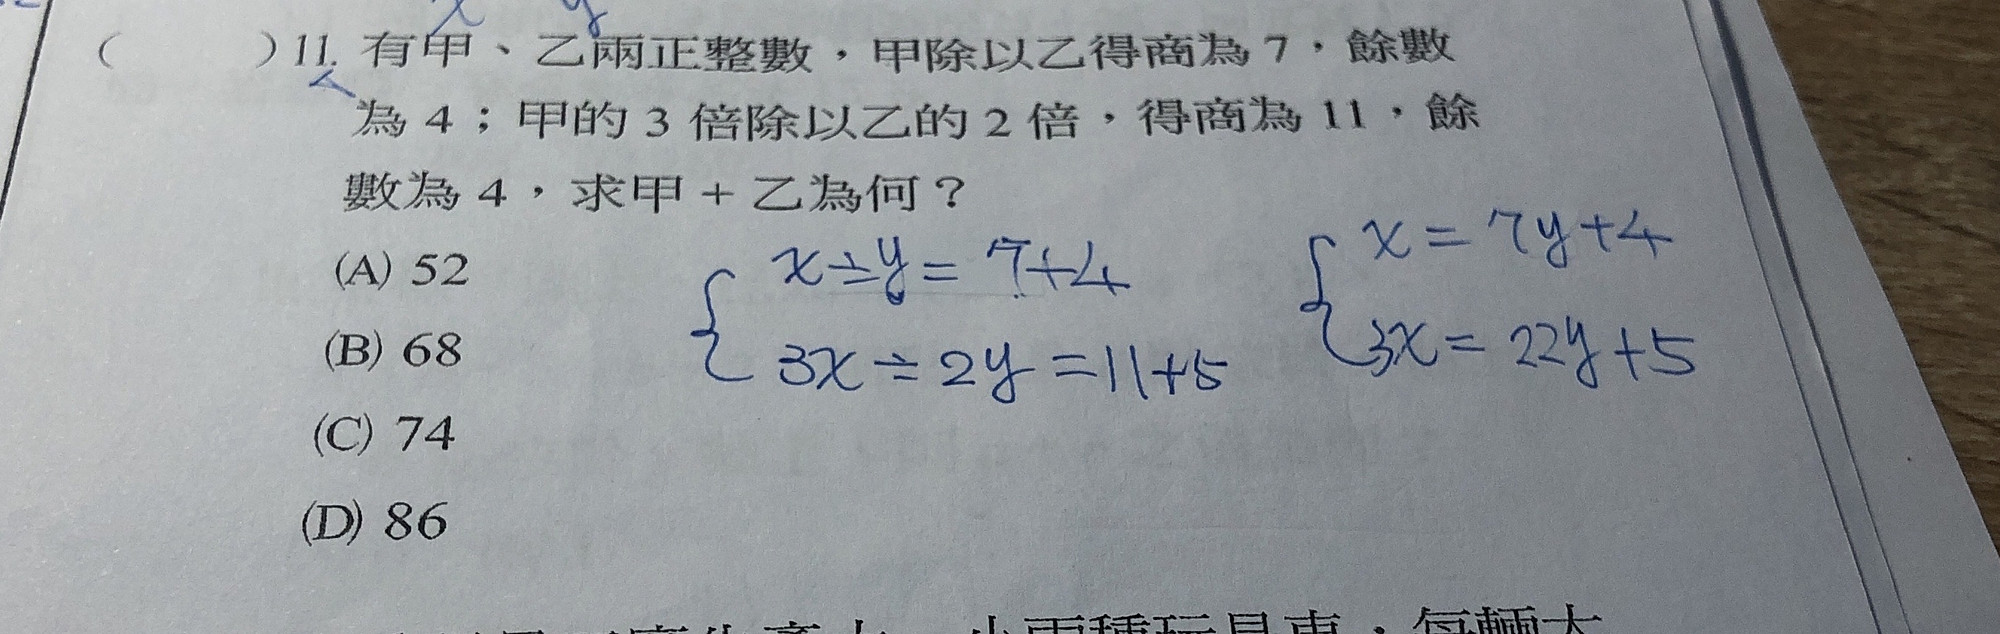 x y
( )11. 有甲、乙兩正整數，甲除以乙得商為 7，餘數
為 4；甲的 3 倍除以乙的 2 倍，得商為 11，餘
數為 4，求甲 + 乙為何？
(A) 52
(B) 68
(C) 74
(D) 86
x÷y = 7+4
3x ÷ 2y = 11+5
x = 7y+4
3x = 22y+5